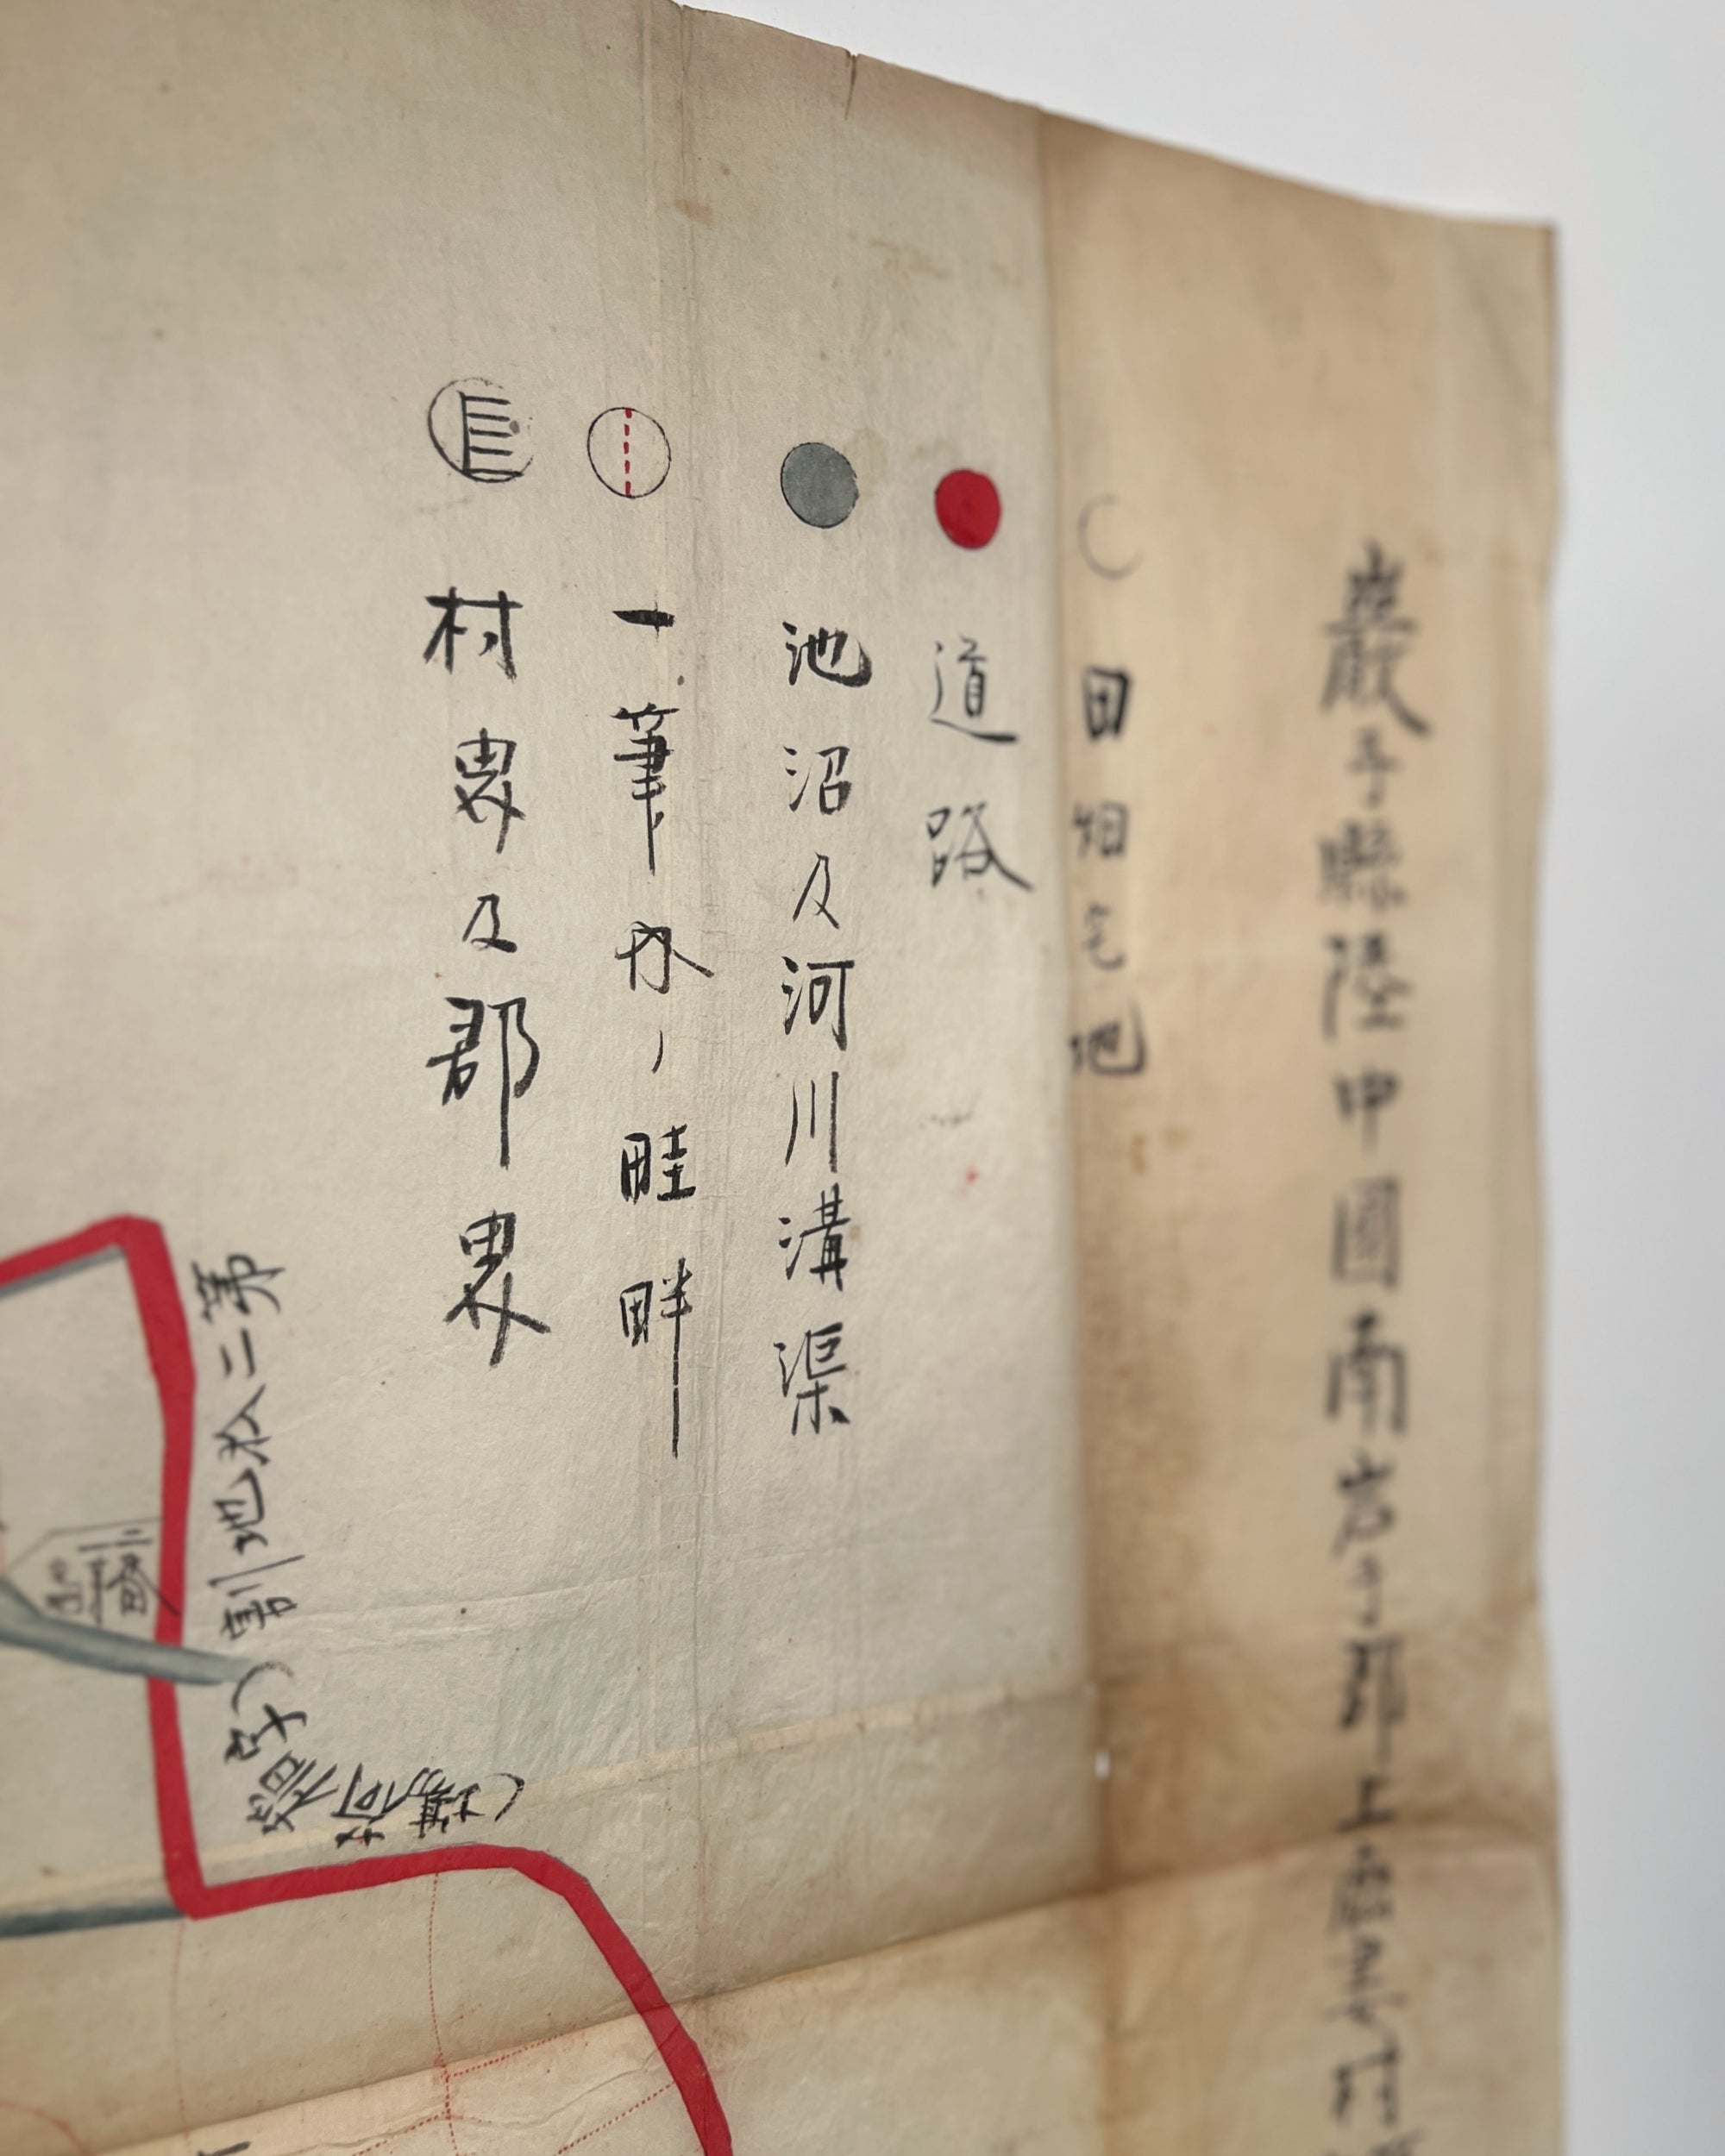 巌手縣陸中國南岩手郡上厨川村
田畑宅地
道路
池沼及河川溝渠
一筆分ノ畦畔
村界及郡界
第二拾地割
(字稲荷場)